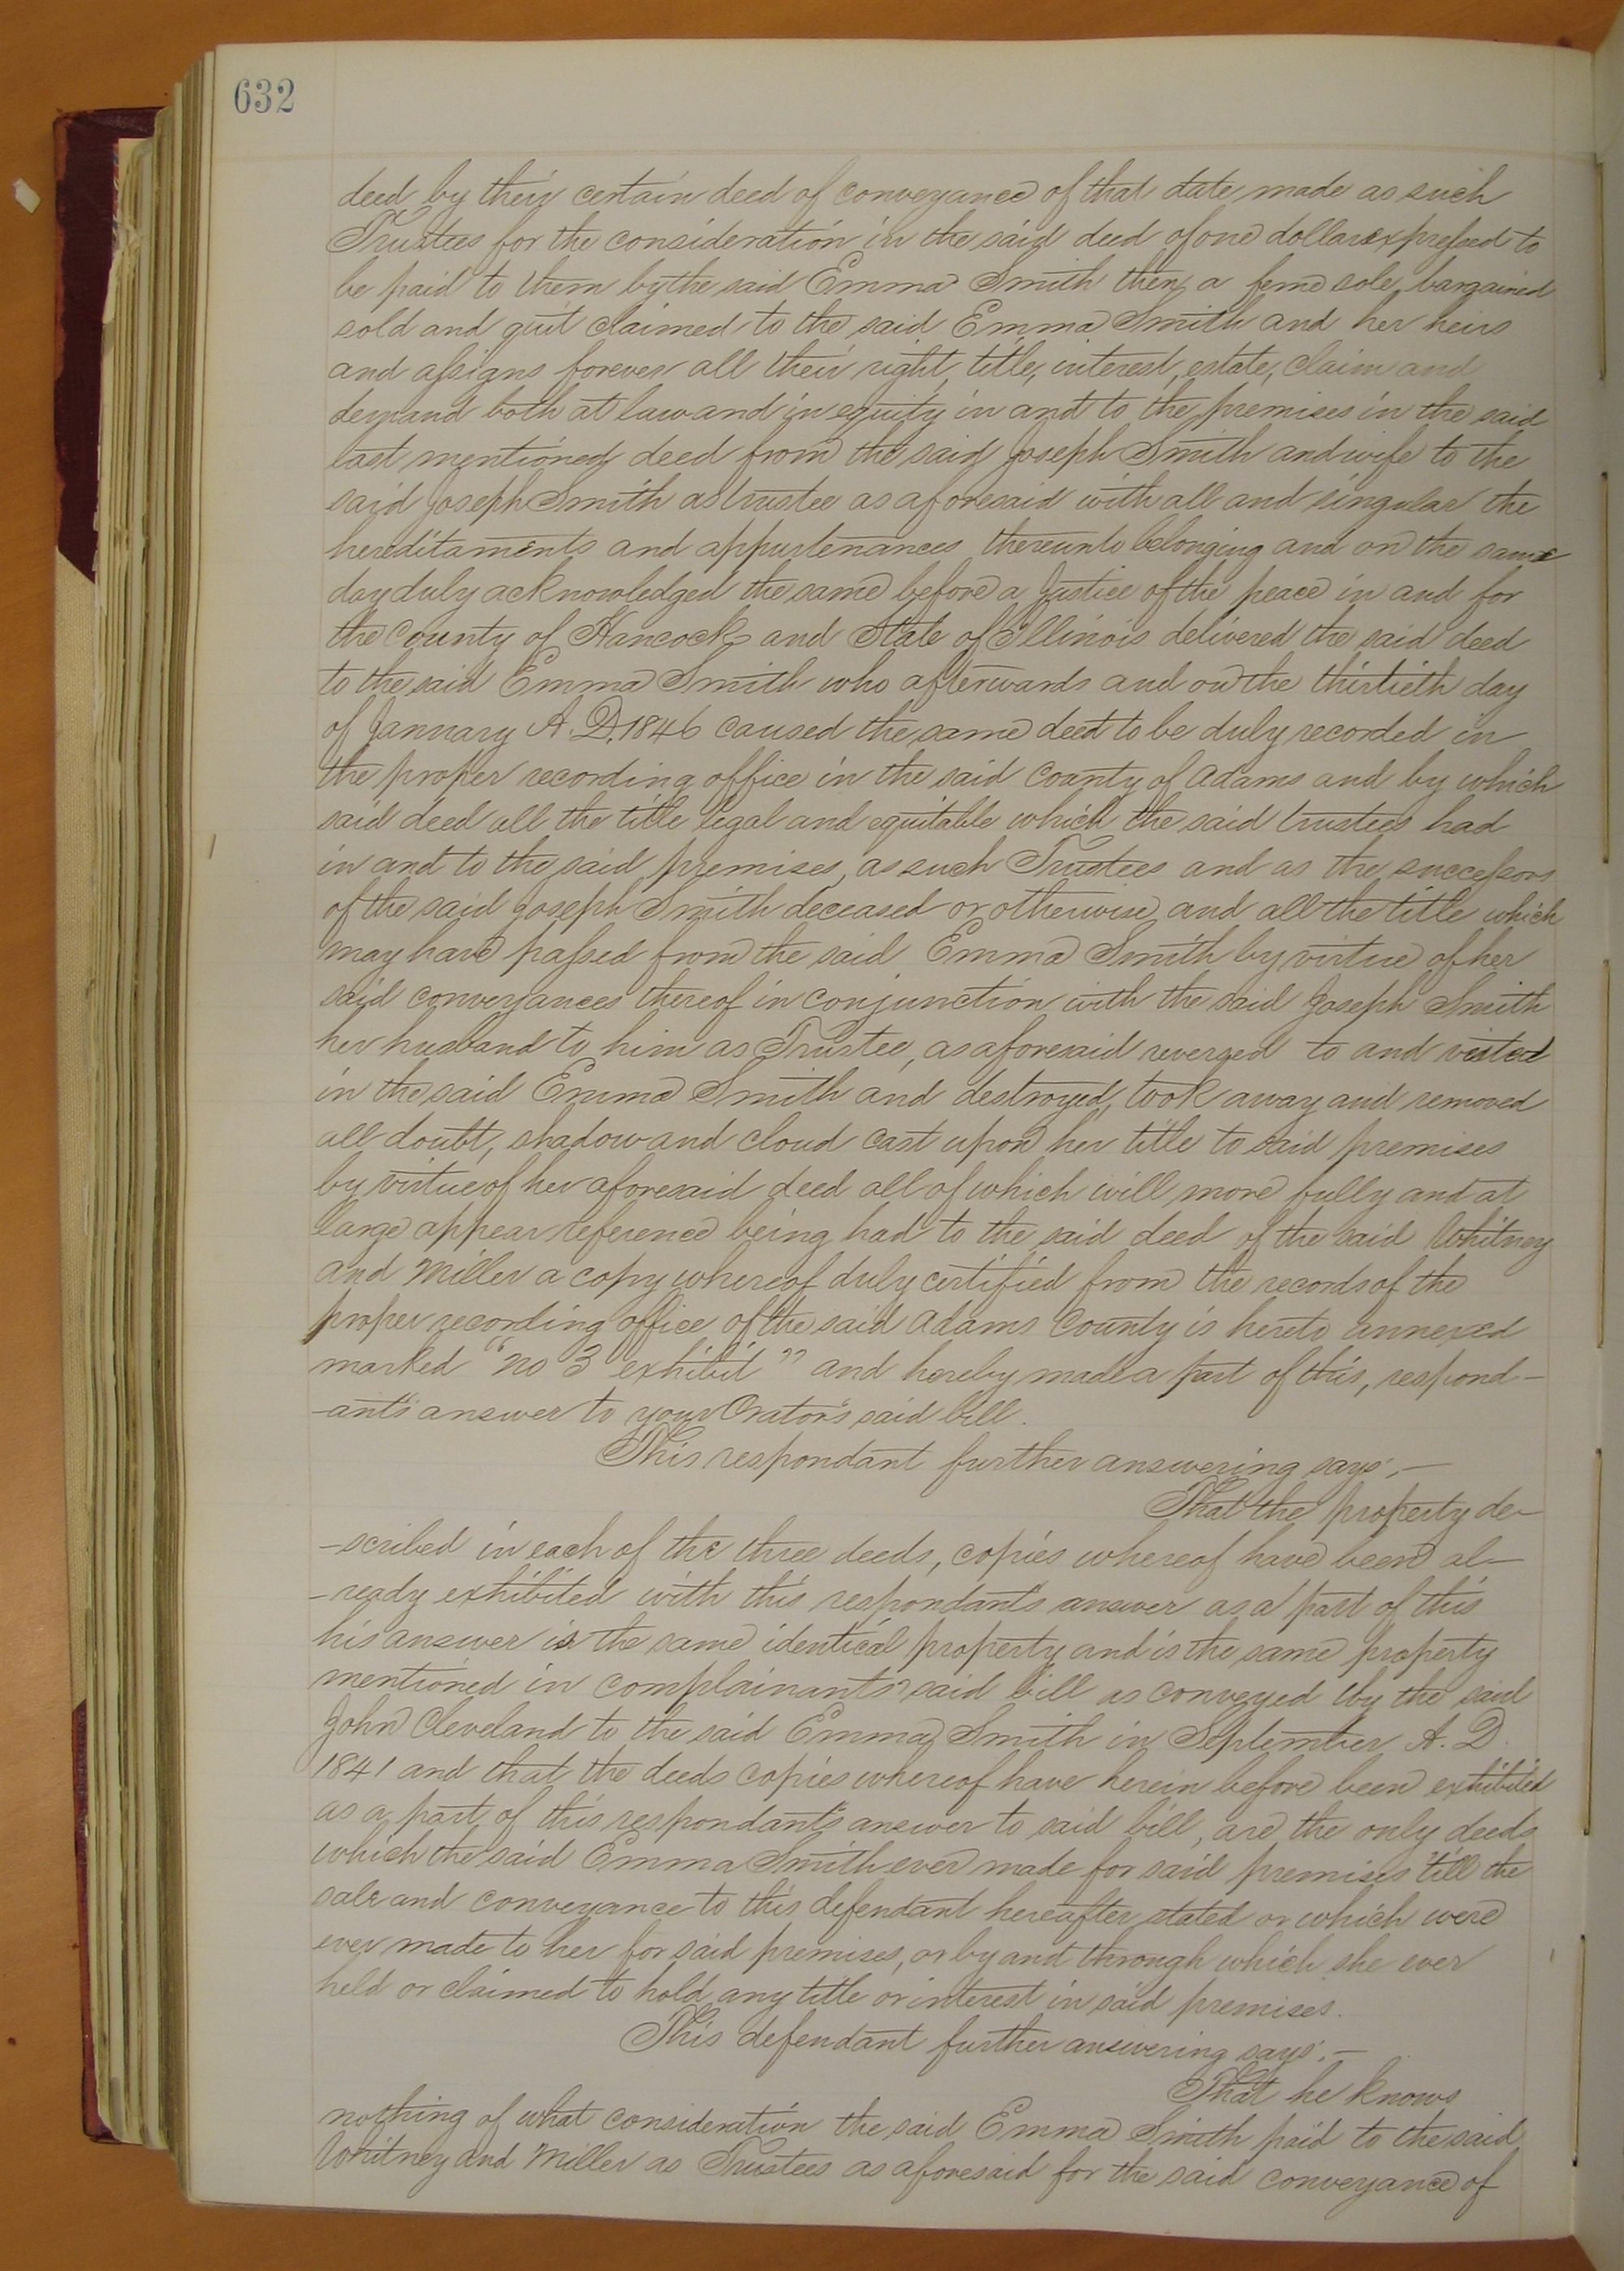 632
deed by their certain deed of conveyance of that date made as such
Trustees for the consideration in the said deed of one dollar expressed to
be paid to them by the said Emma Smith then a feme sole, bargained
sold and quit claimed to the said Emma Smith and her heirs
and assigns forever all their right, title, interest, estate, claim and
demand both at law and in equity in and to the premises in the said
last mentioned deed from the said Joseph Smith and wife to the
said Joseph Smith as trustee as aforesaid with all and singular the
hereditaments and appurtenances thereunto belonging and on the same
day duly acknowledged the same before a Justice of the peace in and for
the County of Hancock and State of Illinois delivered the said deed
to the said Emma Smith who afterwards and on the thirtieth day
of January A.D. 1846 caused the same deed to be duly recorded in
the proper recording office in the said County of Adams and by which
said deed all the title legal and equitable which the said trustees had
in and to the said premises, as such Trustees and as the successors
of the said Joseph Smith deceased or otherwise, and all the title which
may have passed from the said Emma Smith by virtue of her
said conveyances thereof in conjunction with the said Joseph Smith
her husband to him as Trustee, as aforesaid reversed to and vested
in the said Emma Smith and destroyed, took away and removed
all doubt, shadow and cloud cast upon her title to said premises
by virtue of her aforesaid deed all of which will more fully and at
large appear reference being had to the said deed of the said Whitney
and Miller a copy whereof duly certified from the records of the
proper recording office of the said Adams County is hereto annexed
marked "no 3 exhibit" and hereby made a part of this, respond-
-ant's answer to your Orator's said bill.
This respondant further answering says:—
That the property de-
-scribed in each of the three deeds, copies whereof have been al-
-ready exhibited with this respondant's answer as a part of this
his answer is the same identical property and is the same property
mentioned in complainants' said bill as conveyed by the said
John Cleveland to the said Emma Smith in September A.D.
1841 and that the deeds copies whereof have herein before been exhibited
as a part of this respondant's answer to said bill, are the only deeds
which the said Emma Smith ever made for said premises 'till the
sale and conveyance to this defendant hereafter stated or which were
ever made to her for said premises, or by and through which she ever
held or claimed to hold any title or interest in said premises.
This defendant further answering says:—
That he knows
nothing of what consideration the said Emma Smith paid to the said
Whitney and Miller as Trustees as aforesaid for the said conveyance of